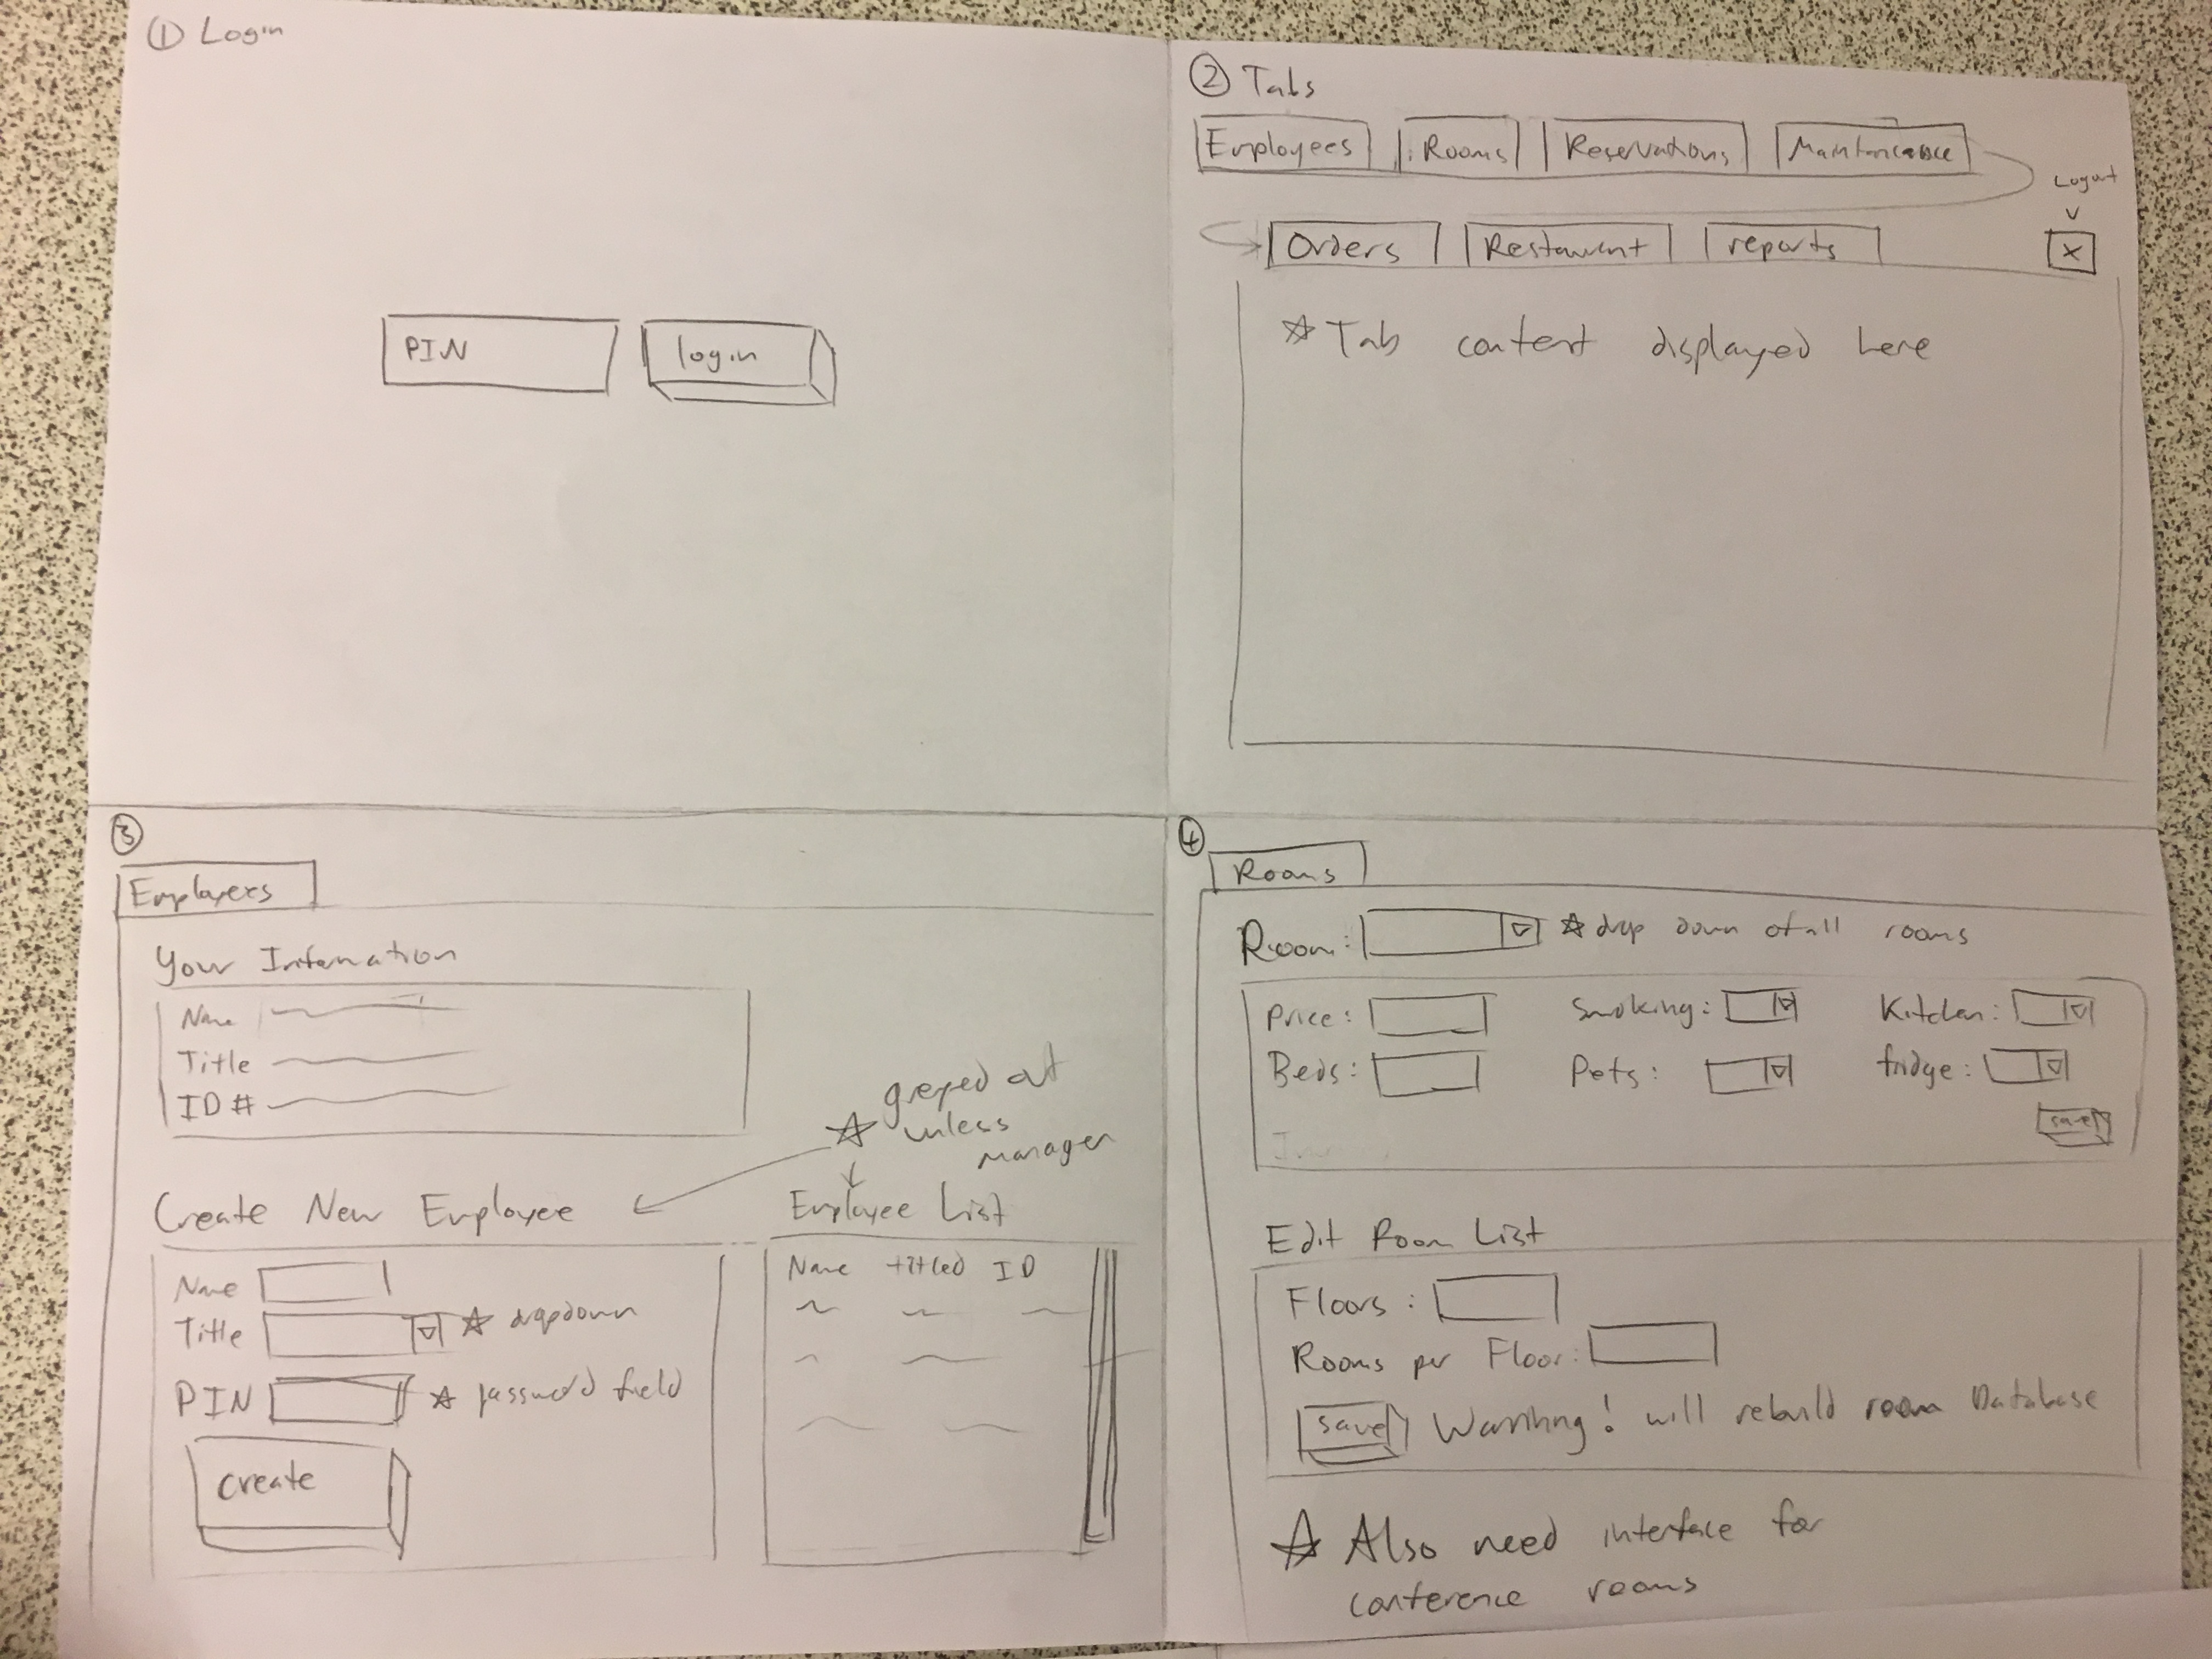 ① Login
PIN
login
② Tabs
Employees Rooms Reservations Maintenance
Logout
Orders Restaurant reports X
☆ Tab content displayed here
③
Employees
Your Information
Name
Title
ID #
☆ greyed out
unless
manager
Create New Employee
Name
Title ☆ dropdown
PIN ☆ password field
create
Employee List
Name titled ID
④
Rooms
Room: ☆ drop down of all rooms
Price: Smoking: Kitchen:
Beds: Pets: fridge:
save
Edit Room List
Floors:
Rooms per Floor:
save Warning! will rebuild room Database
☆ Also need interface for
conference rooms